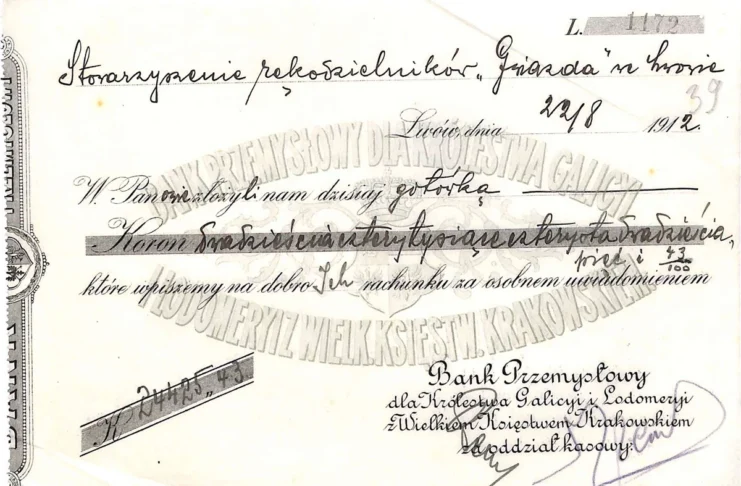 L. 1172
Stowarzyszenie rękodzielników „Gwiazda" we Lwowie
39
Lwów, dnia 22/8 1912.
W. Panowie złożyli nam dzisiaj gotówką
Koron dwadzieściacztery tysiące czterysta dwadzieścia
pięć i 43/100
które wpiszemy na dobro Ich rachunku za osobnem uwiadomieniem
BANK PRZEMYSŁOWY DLA KRÓLESTWA GALICYI
I LODOMERYI Z WIELK. KSIĘSTW. KRAKOWSKIEM
K 24425„43.
Bank Przemysłowy
dla Królestwa Galicyi i Lodomeryi
z Wielkiem Księstwem Krakowskiem
za oddział kasowy: